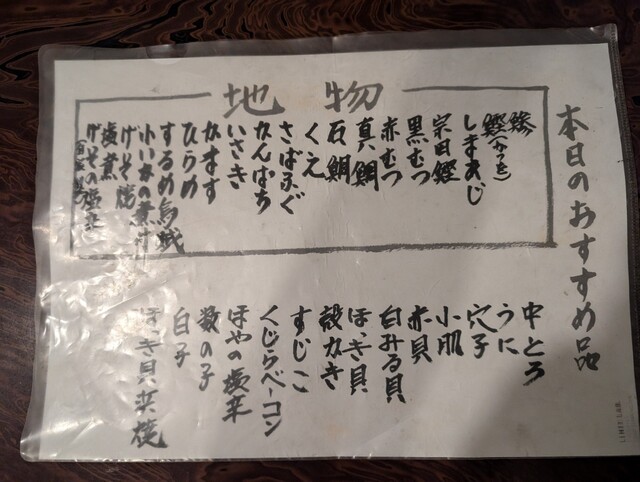 本日のおすすめ品
地物
鯵
鰹(かつを)
しまあじ
宗田鰹
黒むつ
赤むつ
真鯛
石鯛
くえ
さばふぐ
かんぱち
いさき
かます
ひらめ
するめ烏賊
小いかの煮付
げそ焼
塩煮
げその塩辛
中とろ
うに
穴子
小肌
赤貝
白みる貝
ほっき貝
殻かき
すじこ
くじらベーコン
ほやの塩辛
数の子
白子
ほっき貝 焼